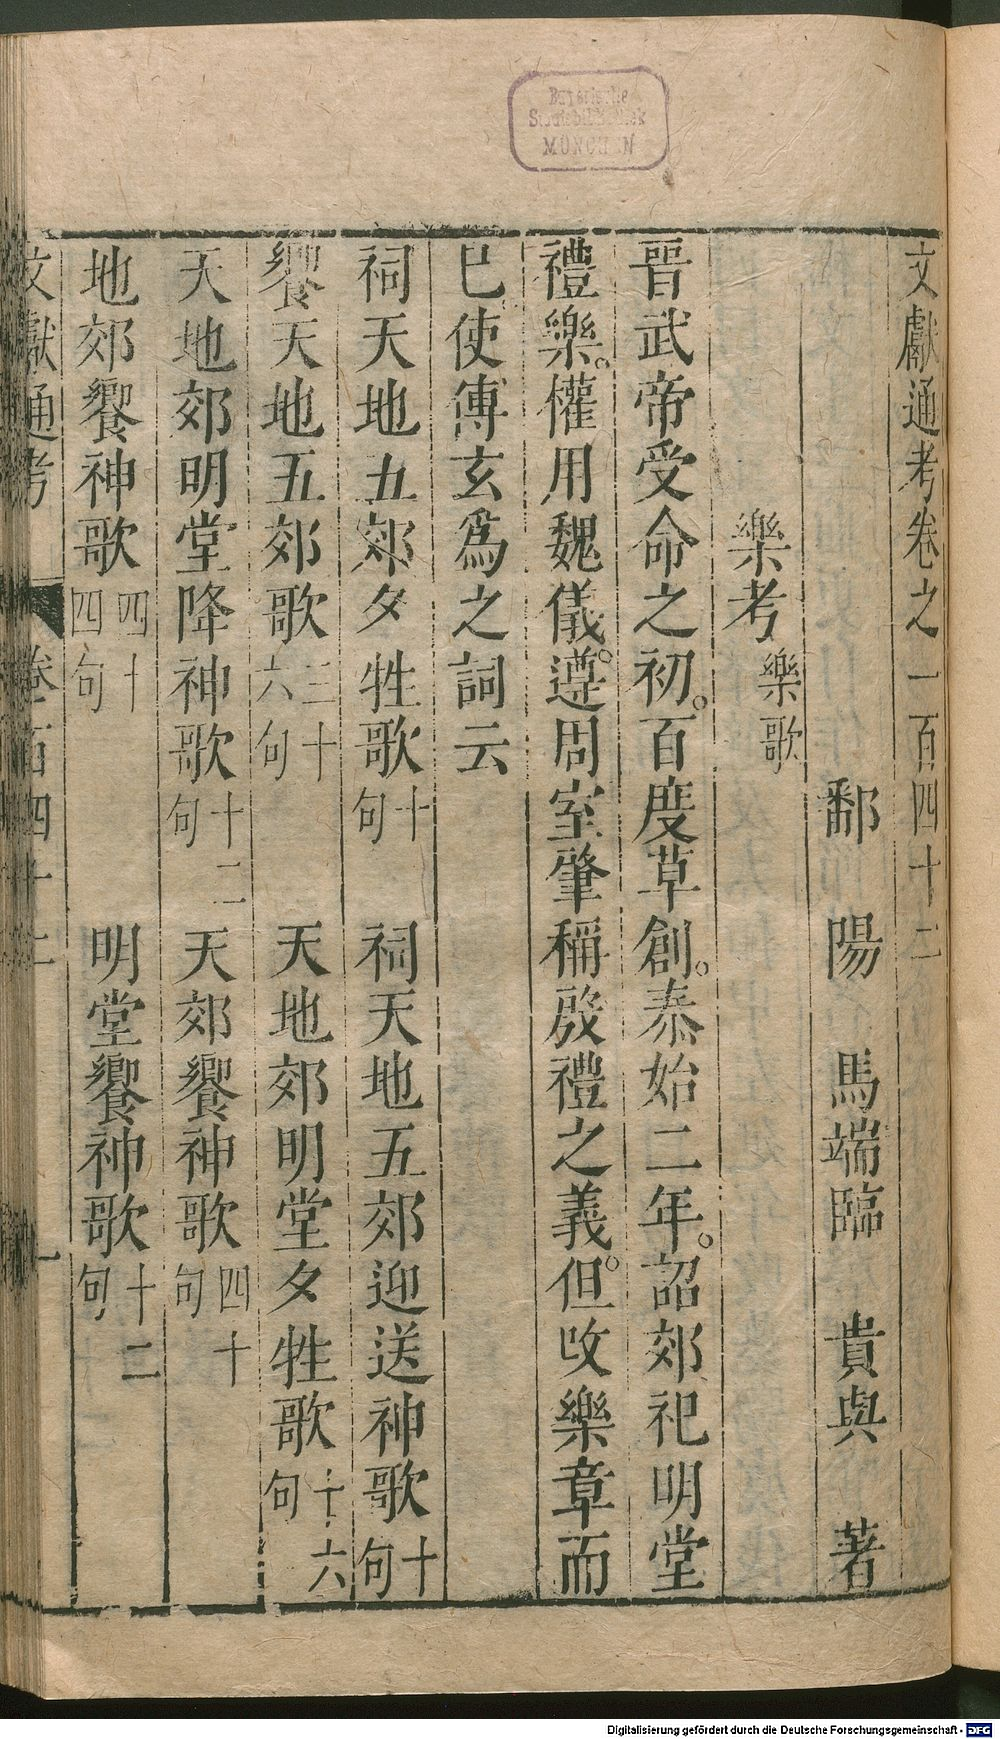 文獻通考卷之一百四十二
鄱陽馬端臨貴與著
樂考樂歌
晉武帝受命之初。百度草創。泰始二年。詔郊祀明堂
禮樂。權用魏儀。遵周室肇稱殷禮之義。但攺樂章而
已使傅玄爲之詞云
祠天地五郊夕牲歌十句 祠天地五郊迎送神歌十句
饗天地五郊歌三十六句 天地郊明堂夕牲歌十六句
天地郊明堂降神歌十二句 天郊饗神歌四十句
地郊饗神歌四十四句 明堂饗神歌十二句
文獻通考 卷百四十二 一
Bayerische
Staatsbibliothek
MÜNCHEN
Digitalisierung gefördert durch die Deutsche Forschungsgemeinschaft - DFG